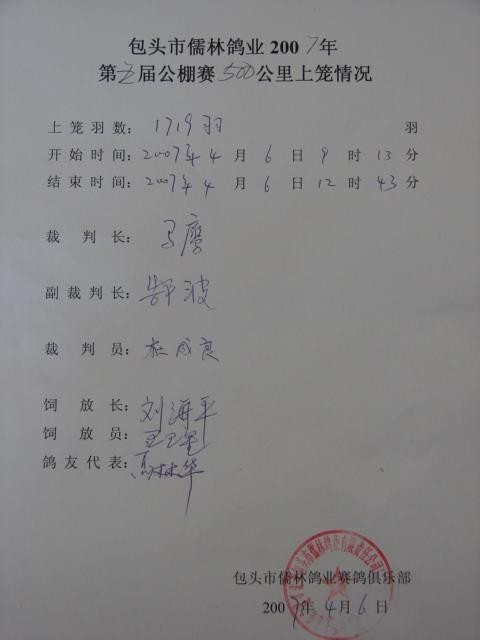 包头市儒林鸽业 2007年
第五届公棚赛 500公里上笼情况
上笼羽数: 1719羽 羽
开始时间: 2007年 4 月 6 日 9 时 13 分
结束时间: 2007年 4 月 6 日 12 时 43 分
裁判长: 马鹰
副裁判长: 郜波
裁判员: 杜成良
饲放长: 刘海平
饲放员:
鸽友代表: 高林华
包头市儒林鸽业赛鸽俱乐部
2007年 4月 6 日